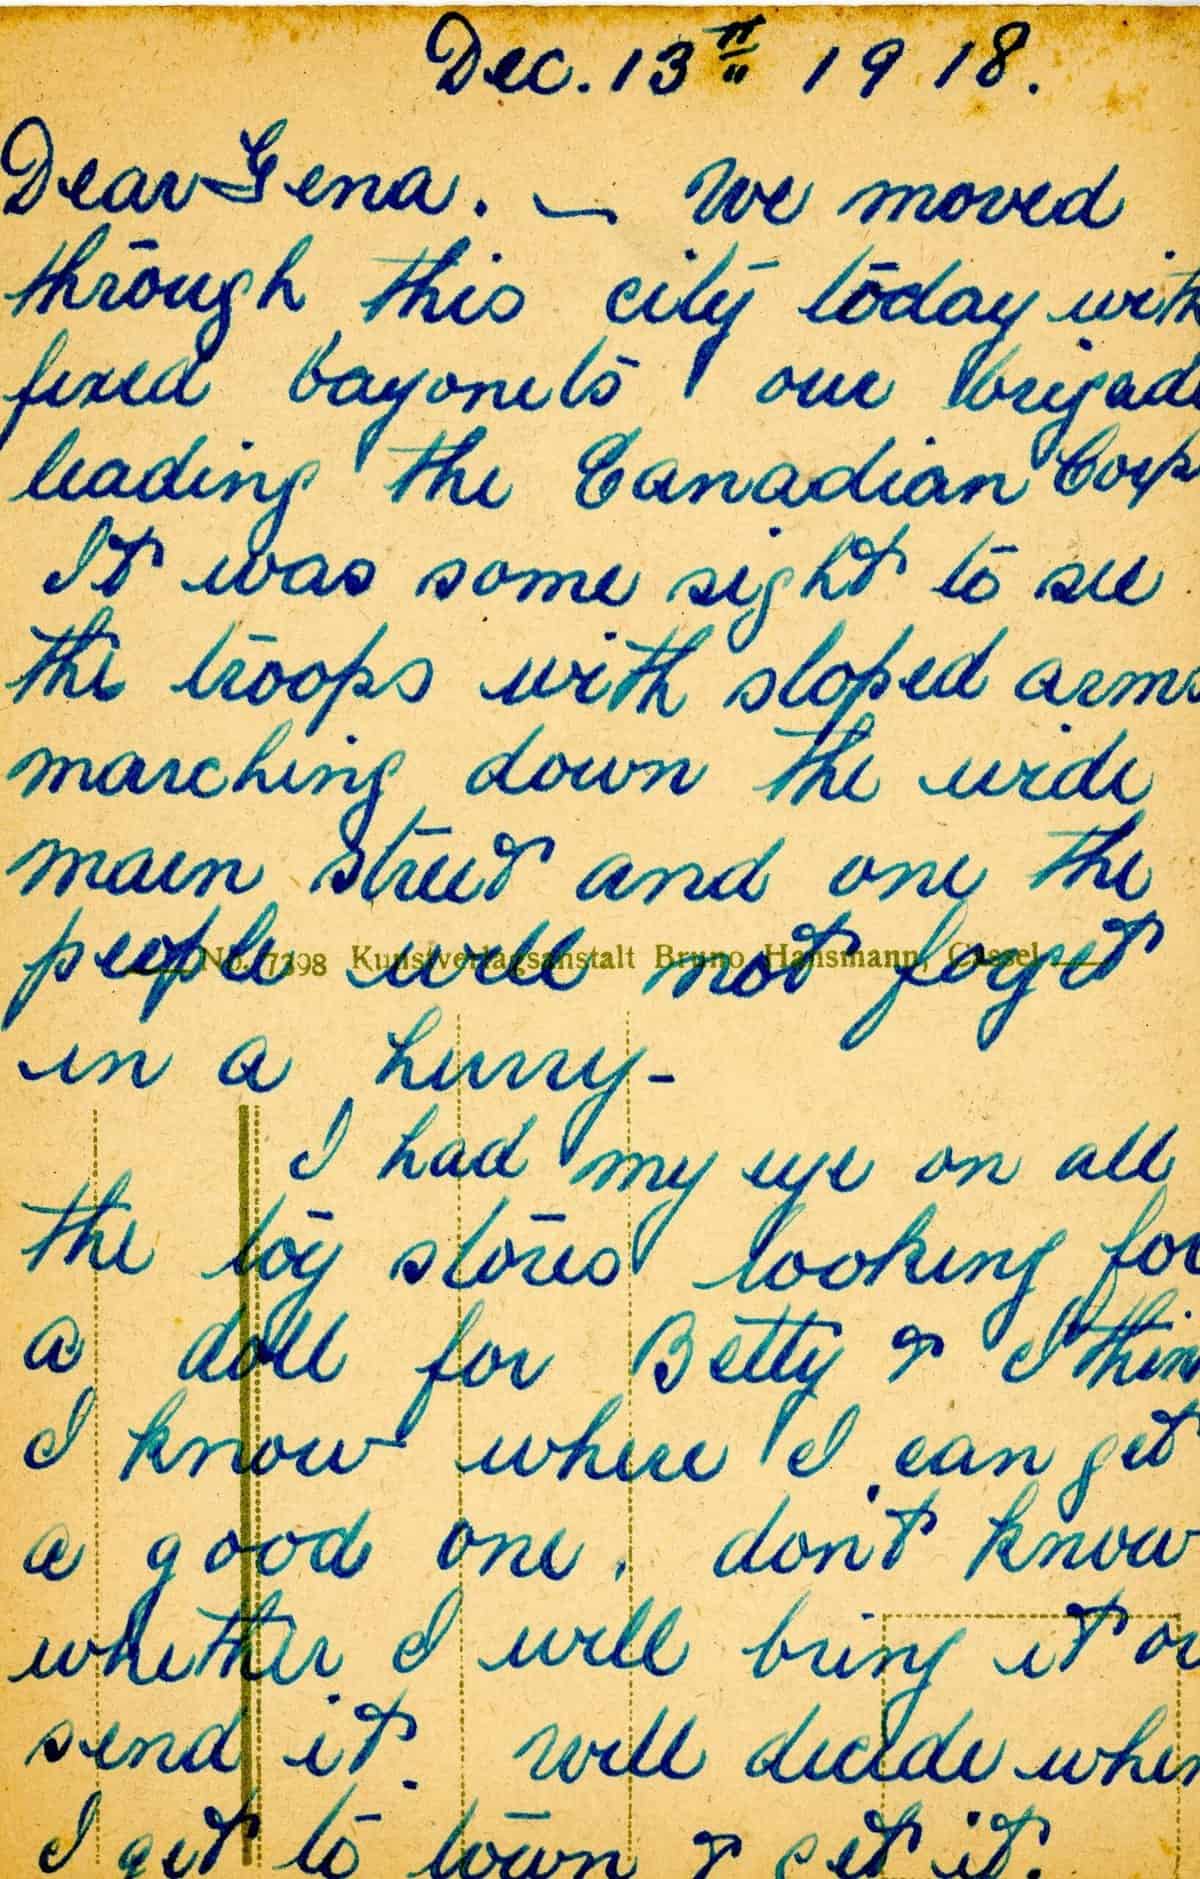 Dec. 13th 1918.
Dear Gena. — We moved
through this city today with
fixed bayonets our brigade
leading the Canadian Corps
It was some sight to see
the troops with sloped arms
marching down the wide
main street and one the
people will not forget
No. 7398 Kunstverlagsanstalt Bruno Hansmann, Cassel
in a hurry-
I had my eye on all
the toy stores looking for
a doll for Betty & I think
I know where I can get
a good one. don't know
whether I will bring it or
send it. Will decide when
I get to town & get it.